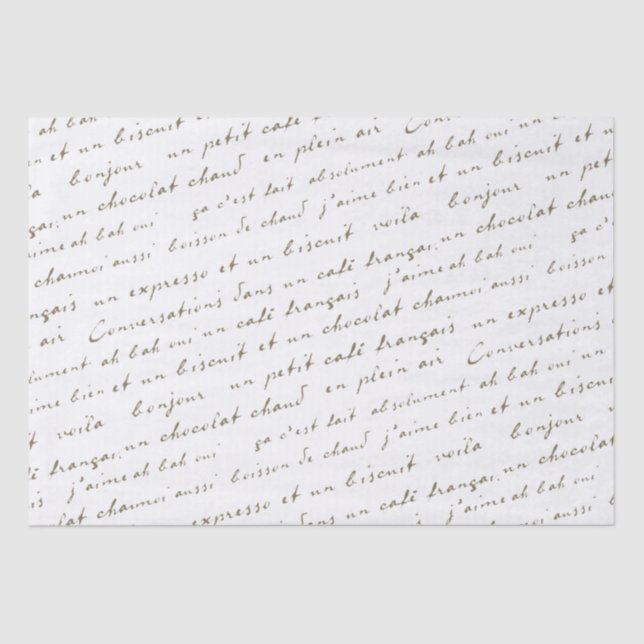 ah bah
en et un biscuit et
la bonjour un petit café f
gai, un chocolat chaud en plein air Conversations
'aime ah bah oui ça c'est fait absolument. ah bah oui un c
charmoi aussi boisson de chaud j'aime bien et un biscuit et u
ngais un expresso et un biscuit voila bonjour un petit
air Conversations dans un café françai, un chocolat chaud
olument. ah bah oui un café français j'aime ah bah oui ça c'es
ime bien et un biscuit et un chocolat charmoi aussi boisson
t voila bonjour un petit café français un expresso et
fé françai, un chocolat chaud en plein air Conversations
is j'aime ah bah oui ça c'est fait absolument. ah bah oui un
lat charmoi aussi boisson de chaud j'aime bien et un biscui
un expresso et un biscuit voila bonjour
dans un café françai, un chocolat
j'aime ah bah oui
aussi